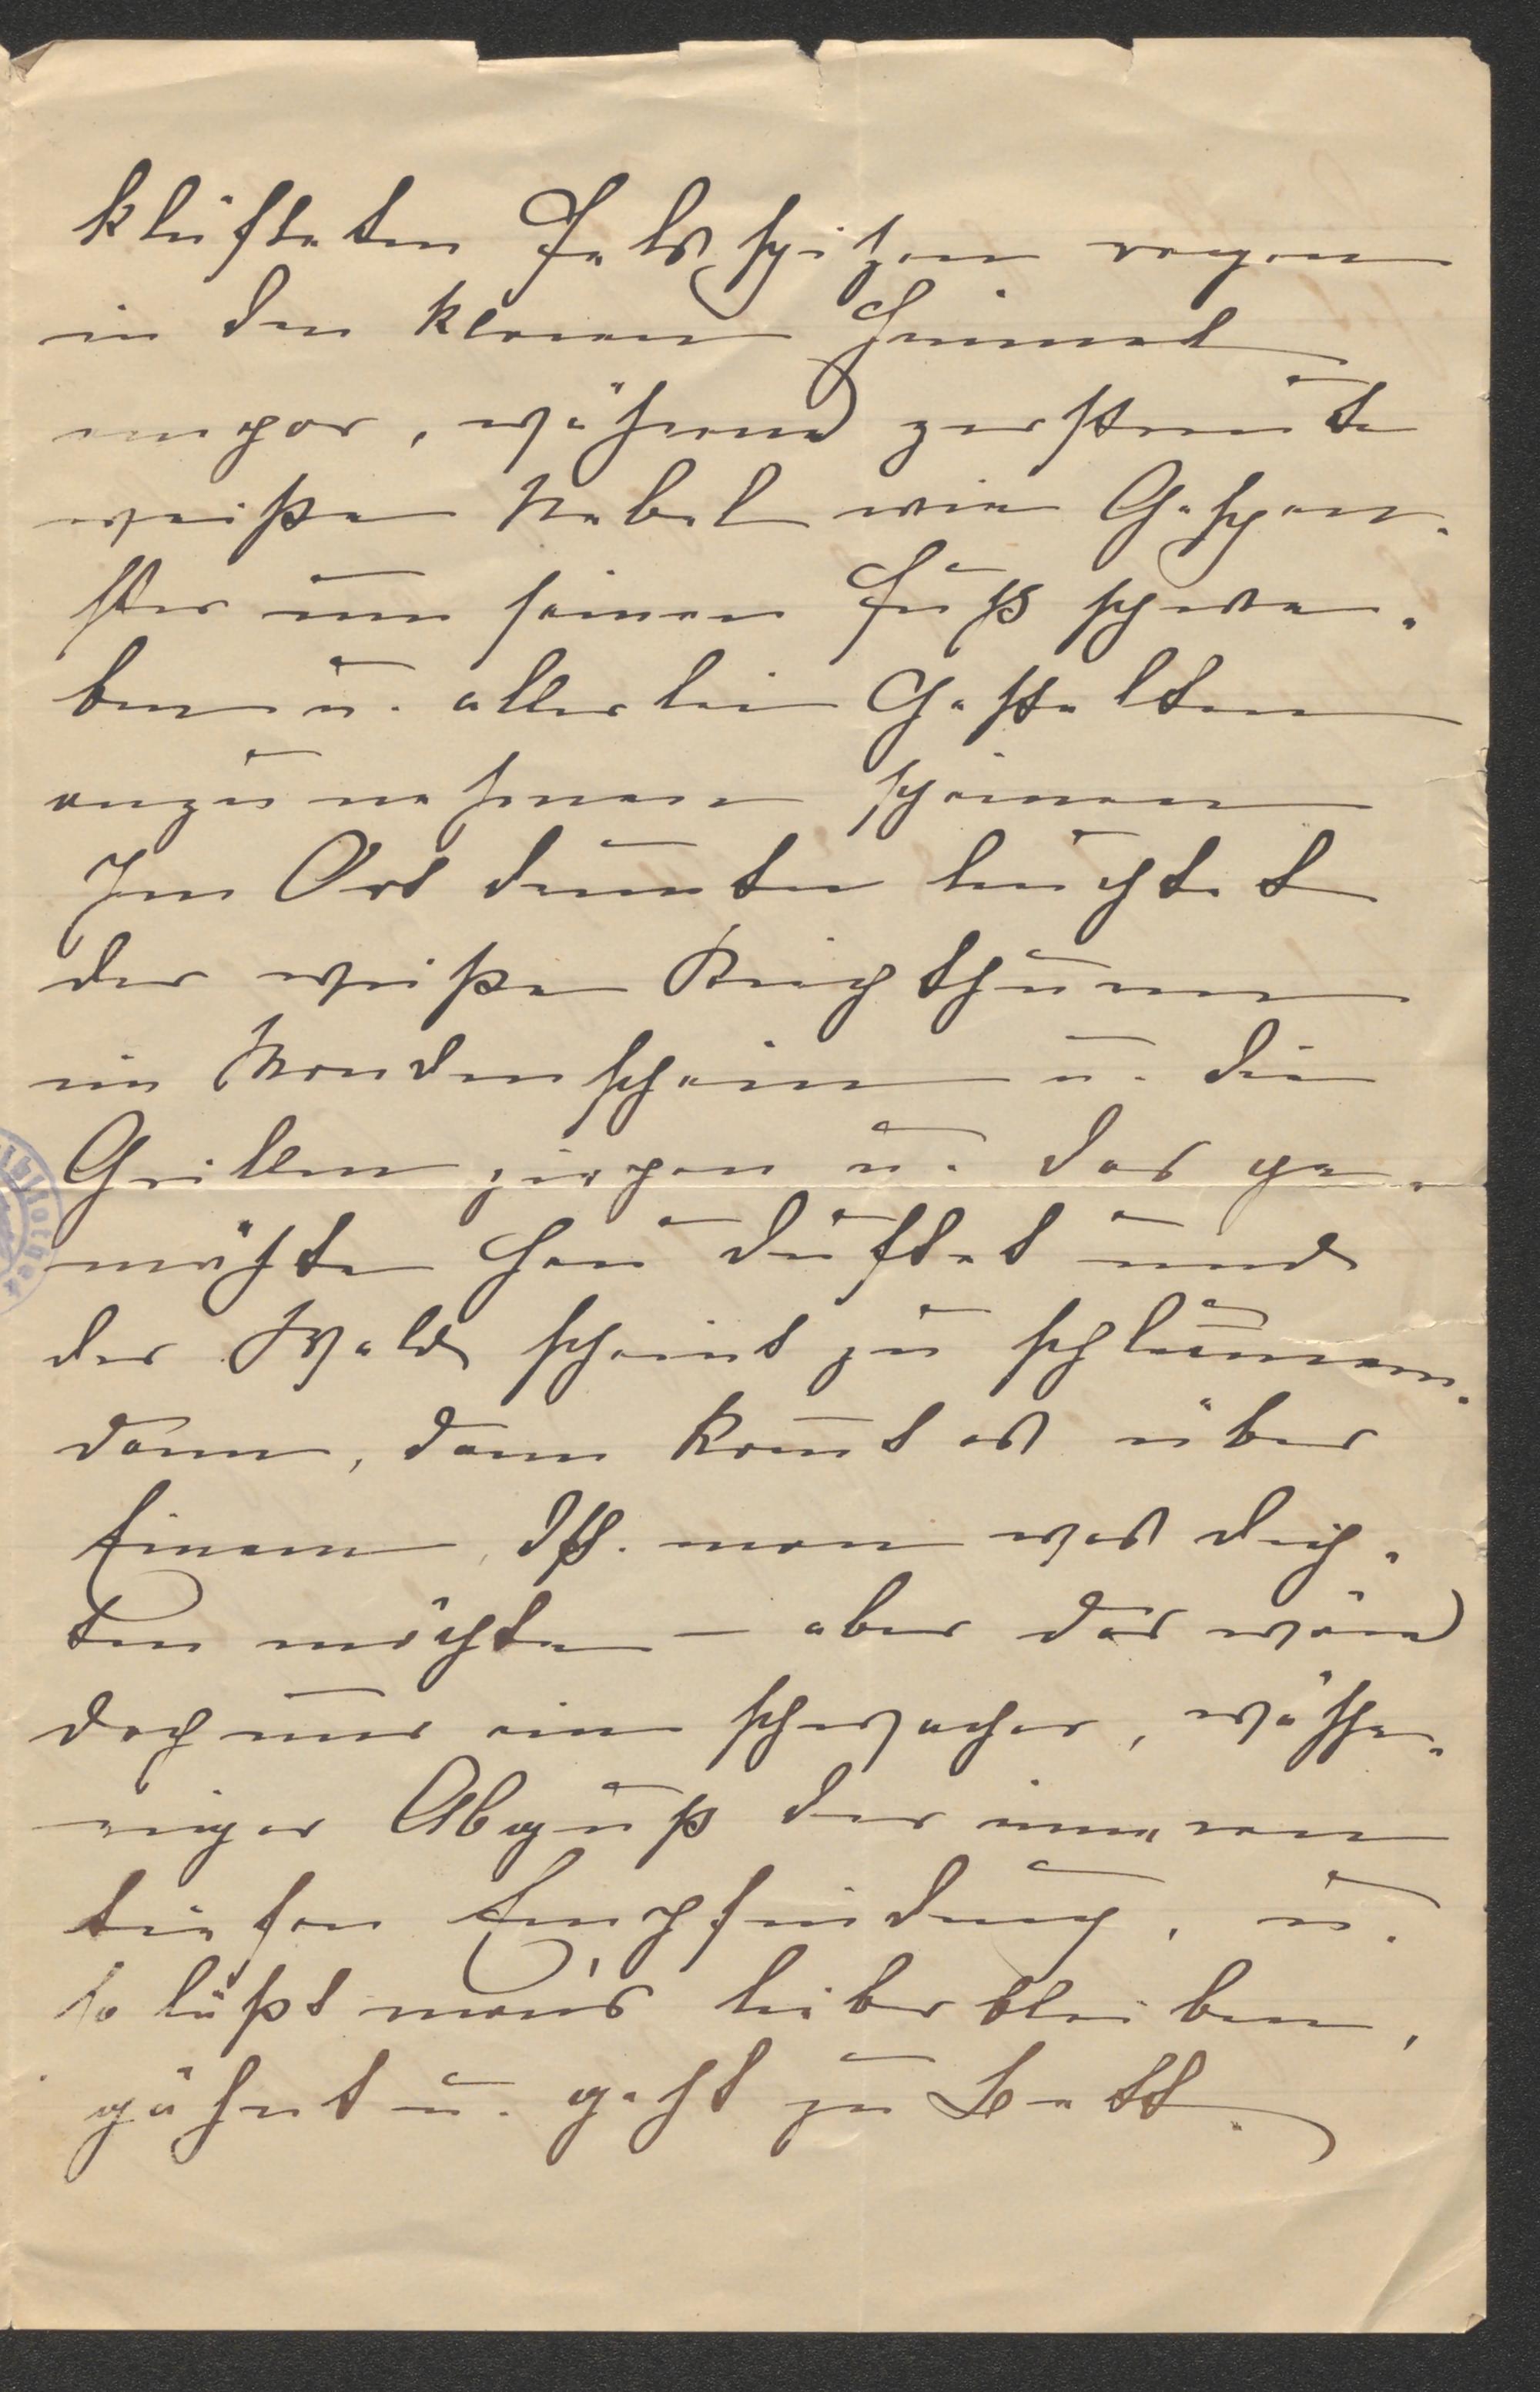 klüfteten Felsspitzen ragen
in den klaren Himmel
empor, während zerstreute
weiße Nebel wie Gespen-
ster um seinen Fuß schwe-
ben u. allerlei Gestalten
anzunehmen scheinen
Im Ort drunten leuchtet
der weiße Kirchthurm
im Mondenschein u. die
Grillen zirpen u. das ge-
mähte Heu duftet und
der Wald scheint zu schlummern.
dann, dann kom̅t es über
Einem, dſs. man was dich-
ten möchte – aber das wäre
doch nur ein schwacher, wässe-
riger Abguß der inneren
tiefen Empfindung, u.
so läßt man's lieber bleiben,
gähnt u. geht zu Bett.